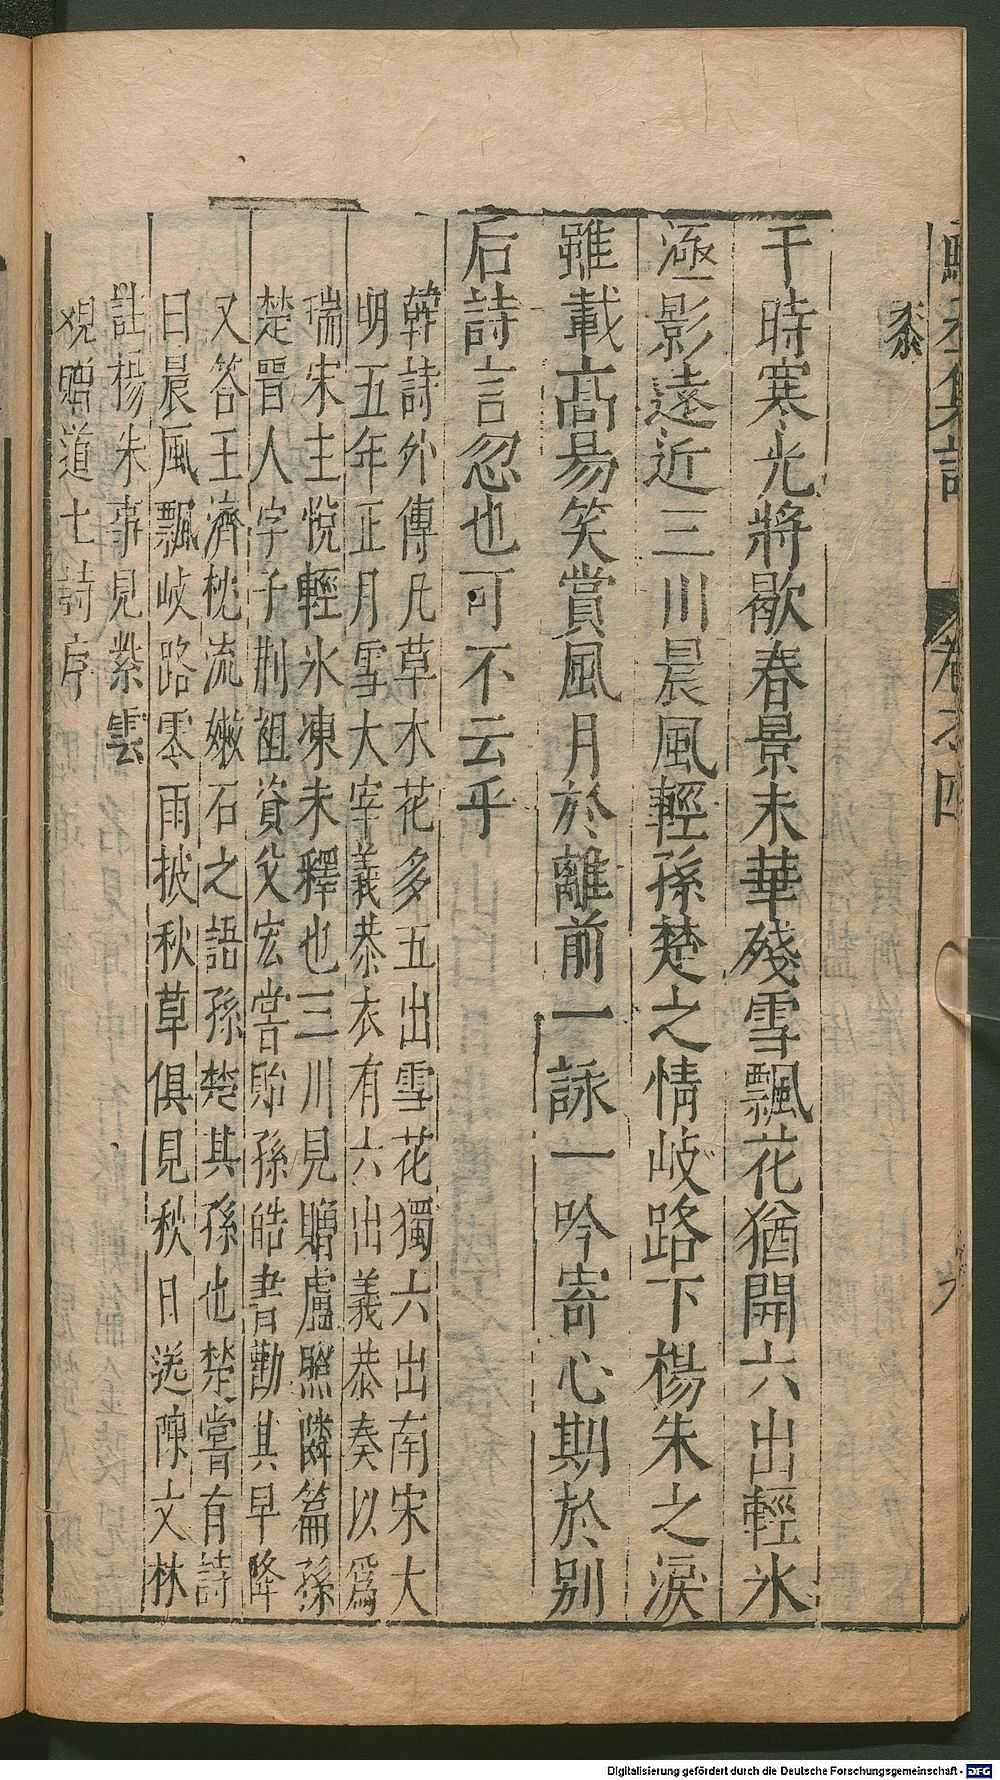 黍
于時寒光將歇春景未華殘雪飄花猶開六出輕氷
涵影遠近三川晨風輕孫楚之情岐路下楊朱之淚
雖載高昜笑賞風月於離前一詠一吟寄心期於别
后詩言忽也可不云乎
韓詩外傳凡草木花多五出雪花獨六出南宋大
明五年正月雪大宰義恭衣有六出義恭奏以爲
瑞宋主悅輕氷凍未釋也三川見贈盧照隣篇孫
楚晋人字子荆祖資父宏嘗貽孫皓書勸其早降
又答王濟枕流嫰石之語孫楚其孫也楚嘗有詩
曰晨風飄岐路零雨披秋草俱見秋日送陳文林
註楊朱事見紫雲
观贈道士詩序
卷之四
Digitalisierung gefördert durch die Deutsche Forschungsgemeinschaft - DFG